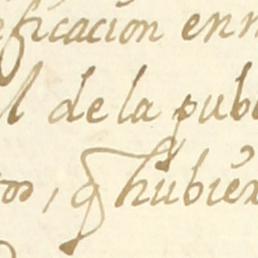 eficacion en
l de la pub
tos, q hubiex